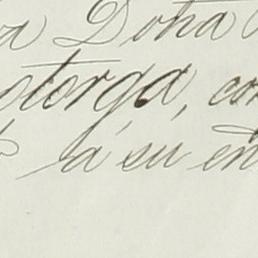 a Doña
storga, con
á su en